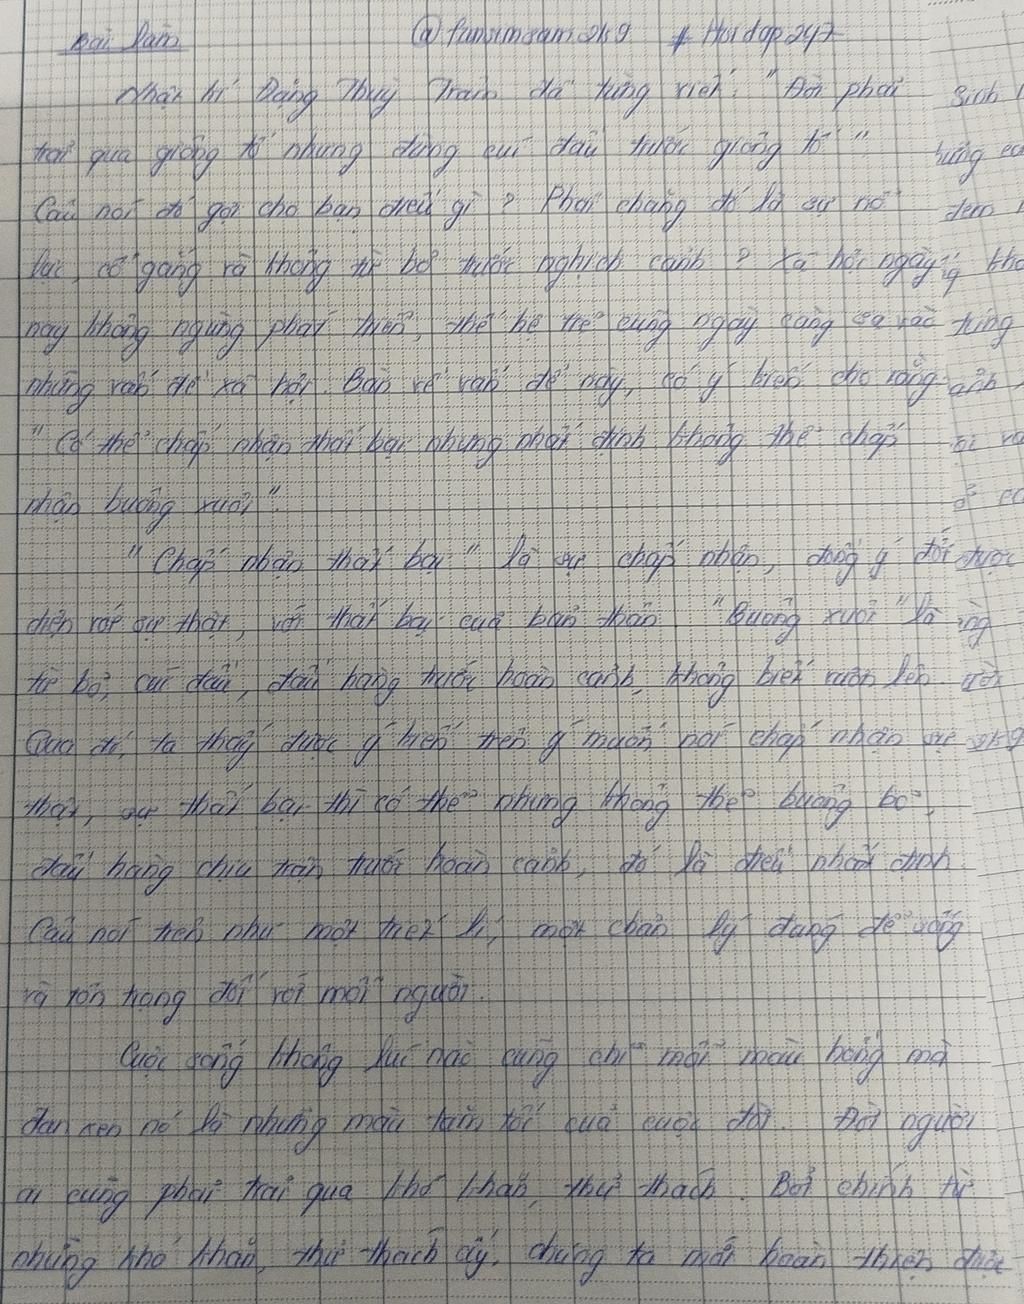 Bài làm @ fansimsam2k9 # Hoidap247
Nhật kí Đặng Thuỳ Trâm đã từng viết: "Đời phải
trải qua giông tố nhưng đừng cúi đầu trước giông tố"
Câu nói đó gợi cho bạn điều gì? Phải chăng đó là sự nỗ
lực, cố gắng và không từ bỏ trước nghịch cảnh? Xã hội ngày
nay không ngừng phát triển, thế hệ trẻ cũng ngày càng sa vào
những vấn đề xã hội. Bàn về vấn đề này, có ý kiến cho rằng
"Có thể chấp nhận thất bại nhưng nhất định không thể chấp
nhận buông xuôi".
"Chấp nhận thất bại" là sự chấp nhận, đồng ý đối
diện với sự thật, với thất bại của bản thân. "Buông xuôi" là
từ bỏ, cúi đầu, đầu hàng trước hoàn cảnh, không biết vươn lên.
Qua đó, ta thấy được ý kiến trên ý muốn nói chấp nhận sự
thật, sự thất bại thì có thể nhưng không thể buông bỏ,
đầu hàng chịu trận trước hoàn cảnh, đó là điều nhất định.
Câu nói trên như một triết lí, một chân lý đáng để sống
và tôn trọng đối với mỗi người.
Cuộc sống không lúc nào cũng chỉ mỗi màu hồng mà
đan xen nó là những màu tăm tối của cuộc đời. Đời người
ai cũng phải trải qua khó khăn, thử thách. Bởi chính từ
những khó khăn, thử thách ấy, chúng ta mới hoàn thiện được